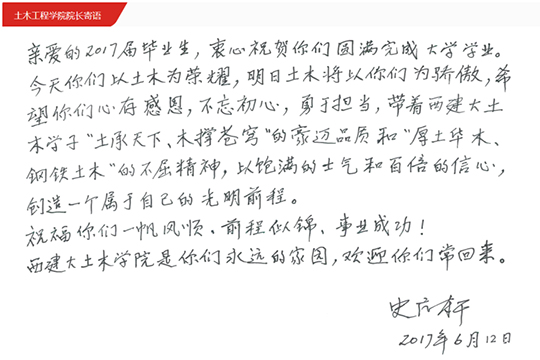 土木工程学院院长寄语
亲爱的2017届毕业生，衷心祝贺你们圆满完成大学学业。
今天你们以土木为荣耀，明日土木将以你们为骄傲，希
望你们心存感恩，不忘初心，勇于担当，带着西建大土
木学子“土承天下、木撑苍穹”的豪迈品质和“厚土华木、
钢铁土木”的不屈精神，以饱满的士气和百倍的信心，
创造一个属于自己的光明前程。
祝福你们一帆风顺、前程似锦、事业成功！
西建大土木学院是你们永远的家园，欢迎你们常回来。
史庆轩
2017年6月12日